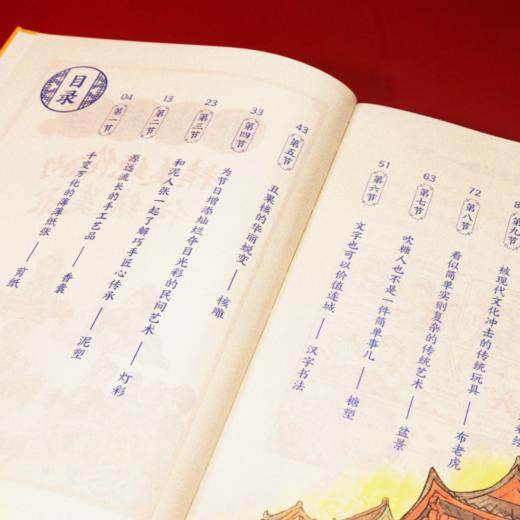 目录
04
第一节
千变万化的薄薄纸张——剪纸
13
第二节
源远流长的手工艺品——香囊
23
第三节
和泥人张一起了解巧手匠心传承——泥塑
33
第四节
为节日增添灿烂夺目光彩的民间艺术——灯彩
43
第五节
丑果核的华丽蜕变——核雕
51
第六节
文字也可以价值连城——汉字书法
63
第七节
吹糖人也不是一件简单事儿——糖塑
72
第八节
看似简单实则复杂的传统艺术——盆景
8
第九节
被现代文化冲击的传统玩具——布老虎